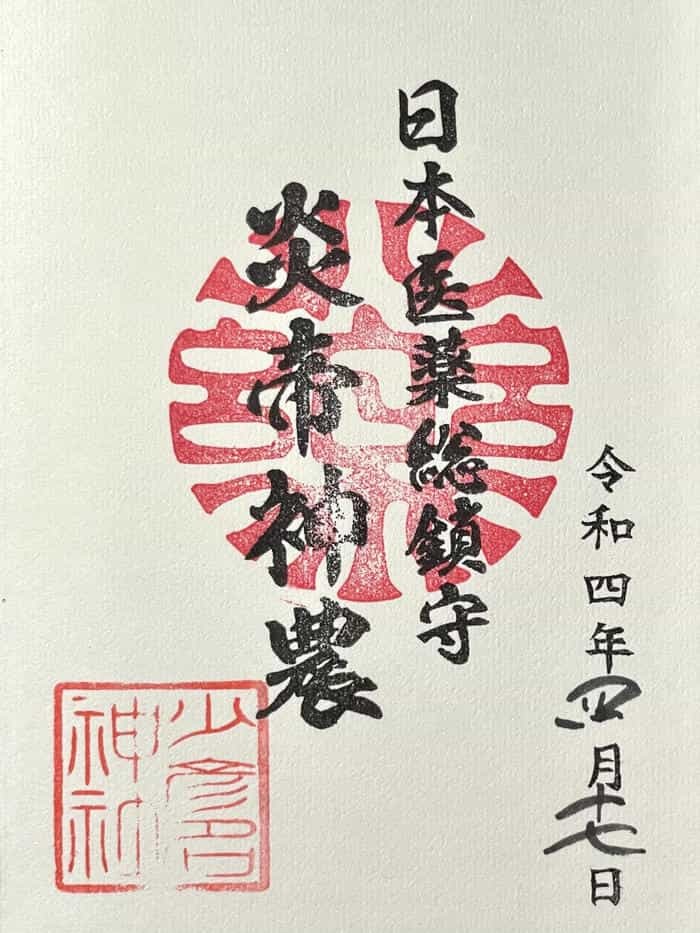 令和四年四月十七日
日本医薬総鎮守
炎帝神農
少彦名
神社